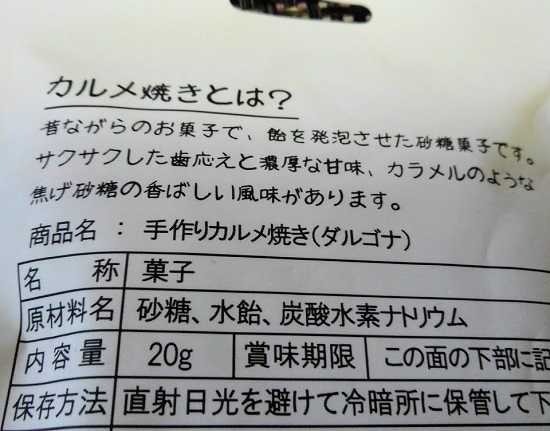 カルメ焼きとは?
昔ながらのお菓子で、飴を発泡させた砂糖菓子です。
サクサクした歯応えと濃厚な甘味、カラメルのような
焦げ砂糖の香ばしい風味があります。
商品名 : 手作りカルメ焼き(ダルゴナ)
名 称 菓子
原材料名 砂糖、水飴、炭酸水素ナトリウム
内容量 20g 賞味期限 この面の下部に記
保存方法 直射日光を避けて冷暗所に保管して下